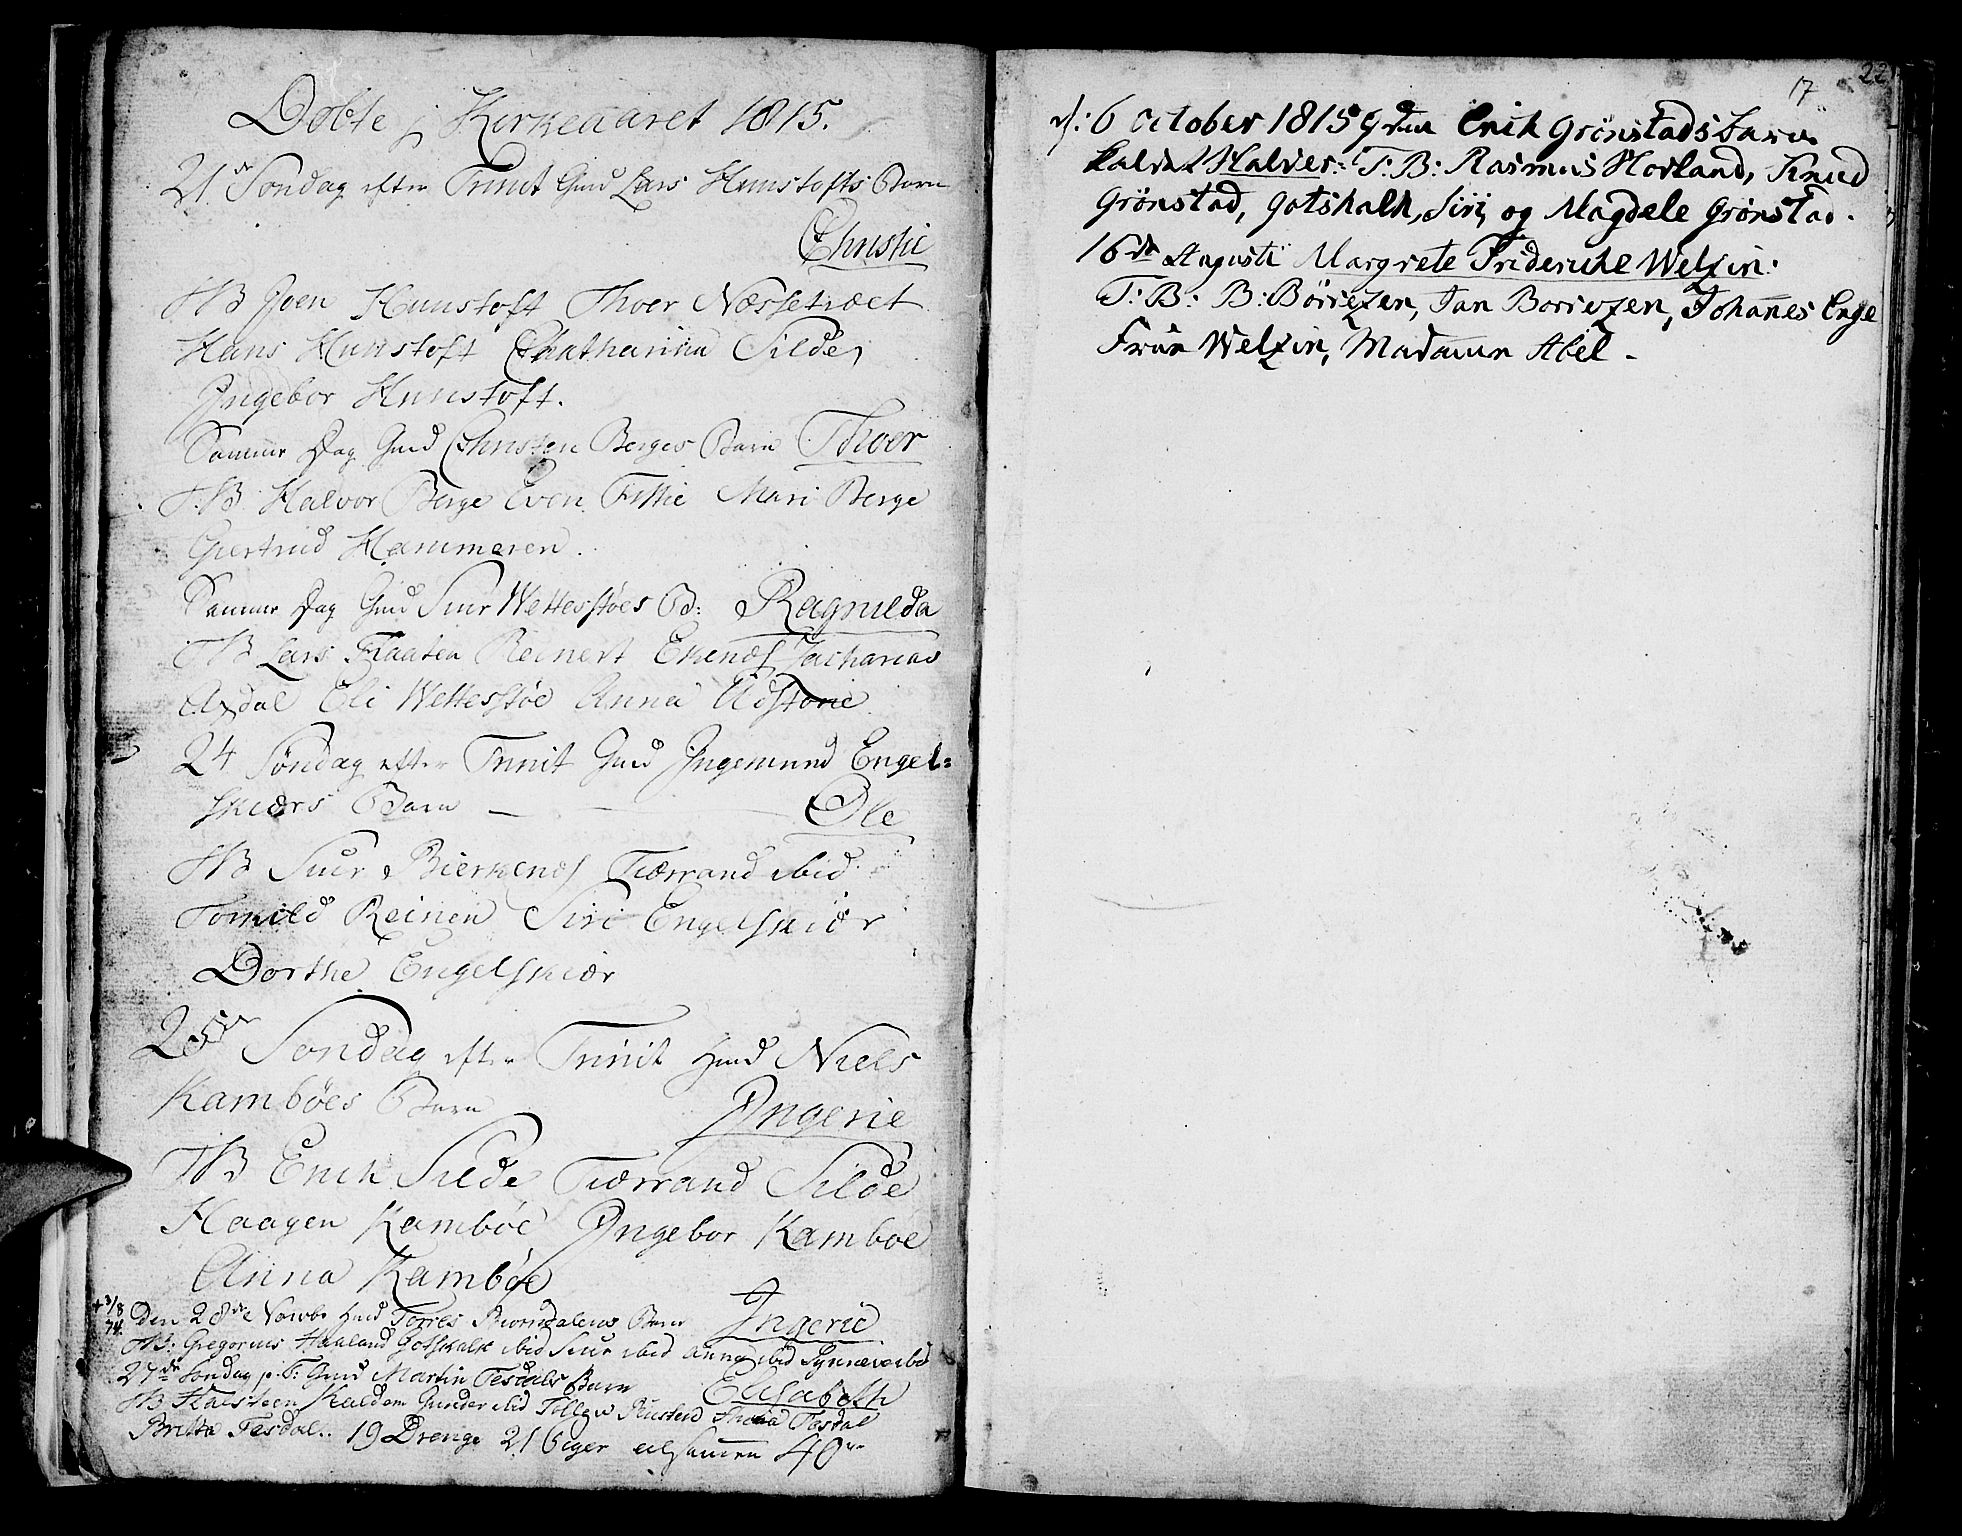 Døbte j Kirkeaaret 1815.
21de Søndag efter Trinit Gud Lars Hunstofts Barn
Christie
TB Joen Hunstoft Thoer Næssetvæt
Hans Hunstoft Chatharina Silde,
Jngebor Hunstoft.
Samme Dag Gud Christen Berges Barn Thoer
T.B. Halvor Berge Even Fittie Mari Berge
Giertrud Hammeren.
Samme Dag Gud Siur Wettesstøes B: Ragnilda
TB Lars Flaaten Reinert Ekenæs Zacharias
Axdal Eli Wettesstøe Anna Udstonie
24 Søndag efter Trinit Gud Jngemund Engel=
skiærs Barn — Ole
TB Siur Bierkenæs Tiærrand ibid.
Tomild Reinen Siri Engelskiær
Dorthe Engelskiær
25de Søndag efter Trinit Gud Niels
Kambøes Barn Jngerie
TB Erich Silde Tiærrand Silde
Haagen Kambøe Jngebor Kamboe
Anna Kambøe
+ 3/8 74. Den 28de Novbr Gud Torres Biorndalens Barn Jngerie
TB: Gregorius Haaland Gotskalk ibid Siur ibid Anna ibid Synneve ibid
27de Søndag p. T: Gud Martin Tesdals Barn Elisabeth
TB Halsteen Kaldem Gunder ibid Tillew Tesdal
Britta Tesdal.. 19 Drenge 21 Piger tilsamen 40
17 22
d: 6 October 1815 Erik Grønstads barn
kaldet Halver: T: B: Rasmus Hovland, Knud
Grønstad, Gotskalk, Siri, og Magdele Grønstad.
16de Augusti Margrete Frideriche Welzin:
T: B: B: Børrezen, Jan Borrezen, Johannes Enge
Frue Welzin, Madamm Abel.